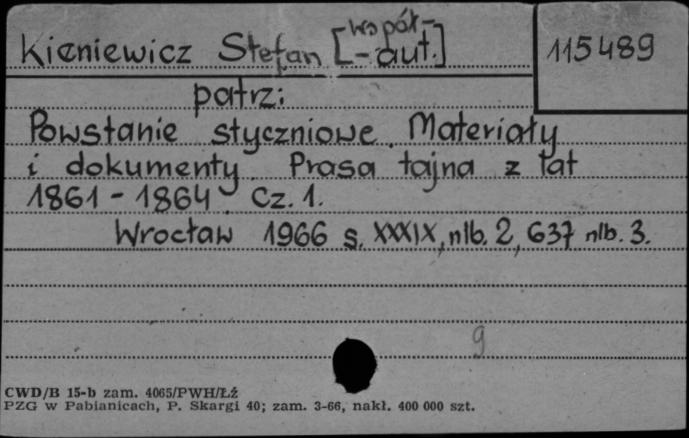 Kieniewicz Stefan [współ-
-aut.]
115489
patrz:
Powstanie styczniowe. Materiały
i dokumenty. Prasa tajna z lat
1861 - 1864. Cz. 1.
Wrocław 1966 s. XXXIX, nlb. 2, 637 nlb. 3.
9
CWD/B 15-b zam. 4065/PWH/Łź
PZG w Pabianicach, P. Skargi 40; zam. 3-66, nakł. 400 000 szt.